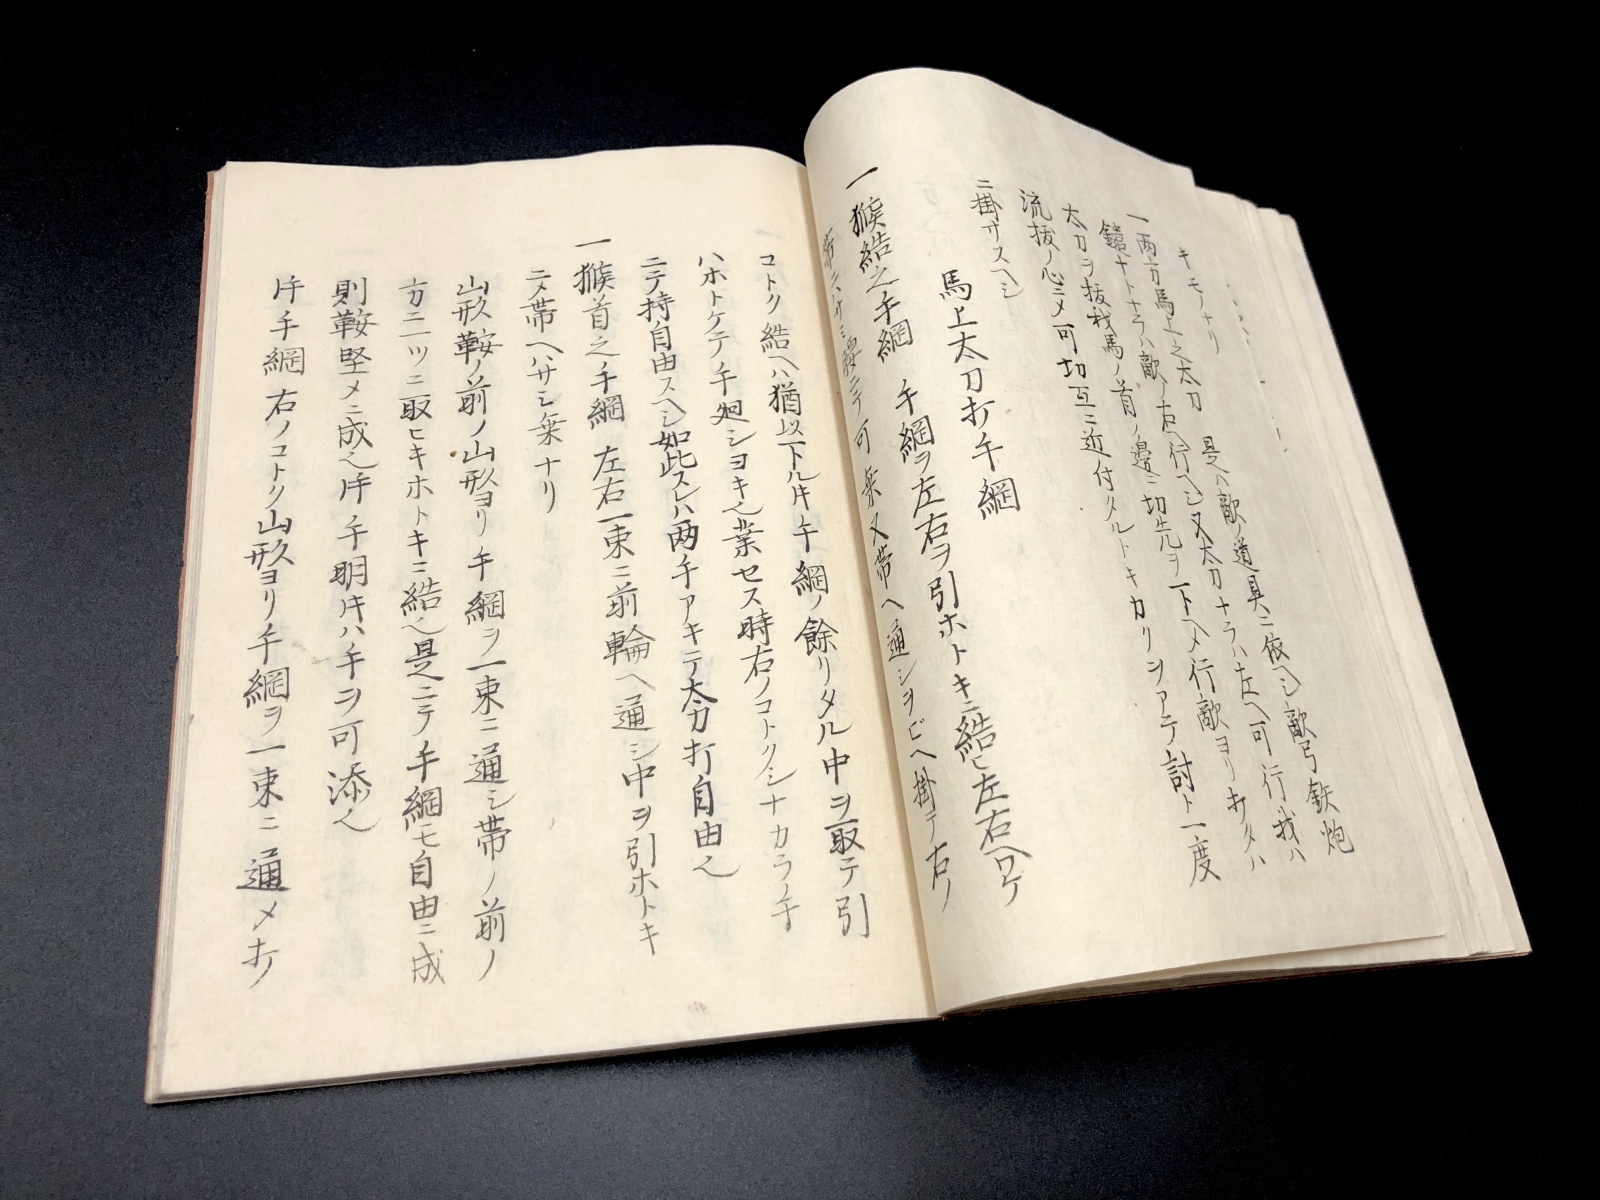 キモノナリ
一両方馬上之太刀 是ハ敵ノ道具ニ依ヘシ敵弓鉄炮
鑓ナトナラハ敵ノ右ヘ行ヘシ又太刀ナラハ左ヘ可行我ハ
太刀ヲ抜我馬ノ首ノ邊ニ切先ヲ下ヘメ行敵ヨリキタハ
流抜ノ心ニメ可切互ニ近付タルトキカリヲアテ討ト一度
ニ掛サスヘシ
馬上太刀打手綱
一猴結之手綱 手綱ヲ左右ヲ引ホトキニ結ヒ左右ヘワケ
帯ニハサミ腰ニテ可乗又帯ヘ通シヲビヘ掛テ右ノ
コトク結ヘハ猶以下ル片手綱ノ餘リタル中ヲ取テ引
ハホトケテノ手廻シヨキ也業セス時右ノコトクシナカラノ手
ニテ持自由スヘシ如此スレハ両手アキテ太刀打自由也
一猴首之手綱 左右一束ニ前輪ヘ通シ中ヲ引ホトキ
ニメ帯ヘハサシ乗ナリ
山形鞍ノ前ノ山形ヨリ手綱ヲ一束ニ通シ帯ノ前ノ
方二ツニ取ヒキホトキニ結也是ニテノ手綱モ自由ニ成
則鞍堅メニ成也片手明片ハ手ヲ可添也
片手綱 右ノコトク山形ヨリ手綱ヲ一束ニ通メ打ノ